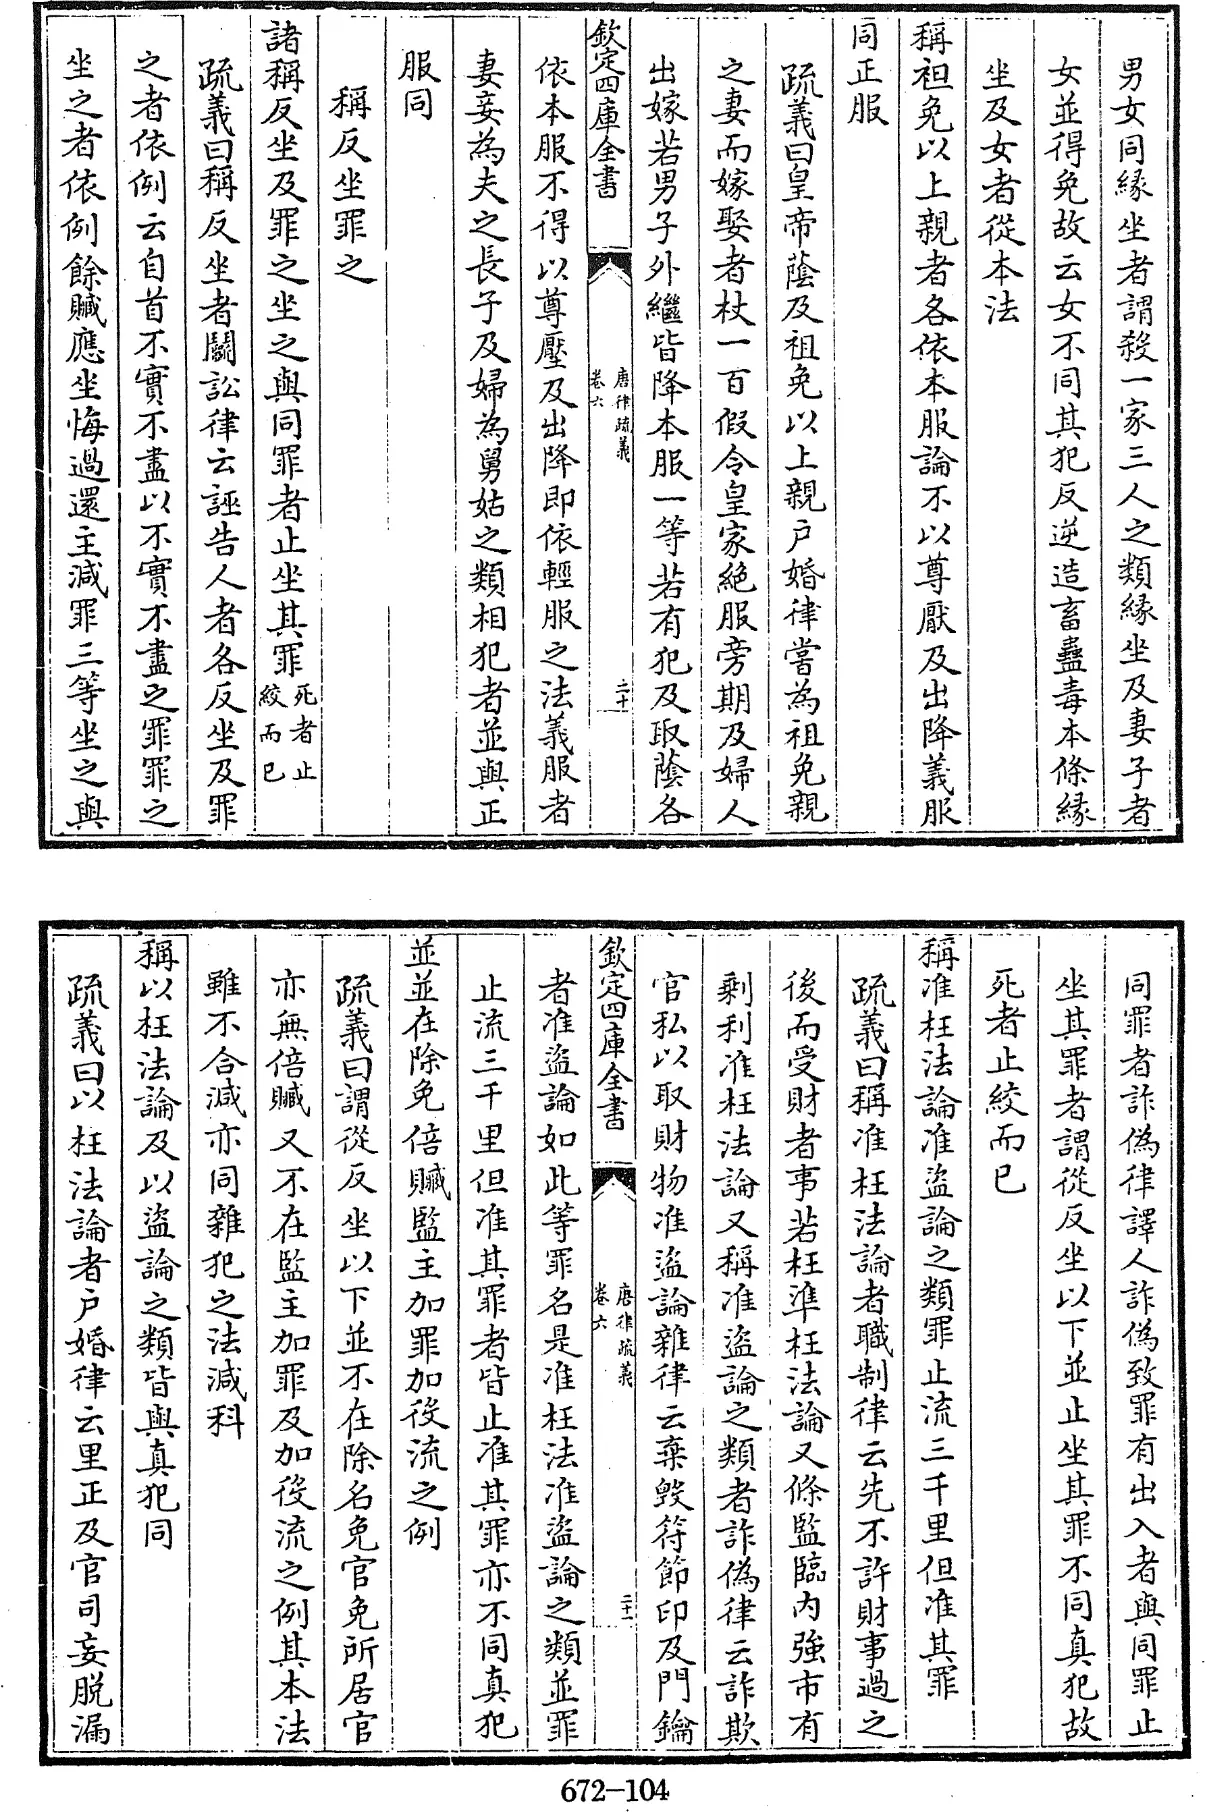 男女同縁坐者謂殺一家三人之類縁坐及妻子者
女並得免故云女不同其犯反逆造畜蠱毒本條縁
坐及女者從本法
稱袒免以上親者各依本服論不以尊厭及出降義服
同正服
疏義曰皇帝蔭及袒免以上親戶婚律嘗為袒免親
之妻而嫁娶者杖一百假令皇家絶服旁期及婦人
出嫁若男子外繼皆降本服一等若有犯及取蔭各
欽定四庫全書
唐律疏義
卷六
二十
依本服不得以尊壓及出降即依輕服之法義服者
妻妾為夫之長子及婦為舅姑之類相犯者並與正
服同
稱反坐罪之
諸稱反坐及罪之坐之與同罪者止坐其罪死者止
絞而已
疏義曰稱反坐者鬭訟律云誣告人者各反坐及罪
之者依例云自首不實不盡以不實不盡之罪罪之
坐之者依例餘贓應坐悔過還主減罪三等坐之與
同罪者詐偽律譯人詐偽致罪有出入者與同罪止
坐其罪者謂從反坐以下並止坐其罪不同真犯故
死者止絞而已
稱准枉法論准盜論之類罪止流三千里但准其罪
疏義曰稱准枉法論者職制律云先不許財事過之
後而受財者事若枉準枉法論又條監臨内強市有
剩利准枉法論又稱准盜論之類者詐偽律云詐欺
官私以取財物准盜論雜律云棄毀符節印及門鑰
欽定四庫全書
唐律疏義
卷六
二十一
者准盜論如此等罪名是准枉法准盜論之類並罪
止流三千里但准其罪者皆止准其罪亦不同真犯
並並在除免倍贓監主加罪加役流之例
疏義曰謂從反坐以下並不在除名免官免所居官
亦無倍贓又不在監主加罪及加役流之例其本法
雖不合減亦同雜犯之法減科
稱以枉法論及以盜論之類皆與真犯同
疏義曰以枉法論者戶婚律云里正及官司妄脱漏
672–104